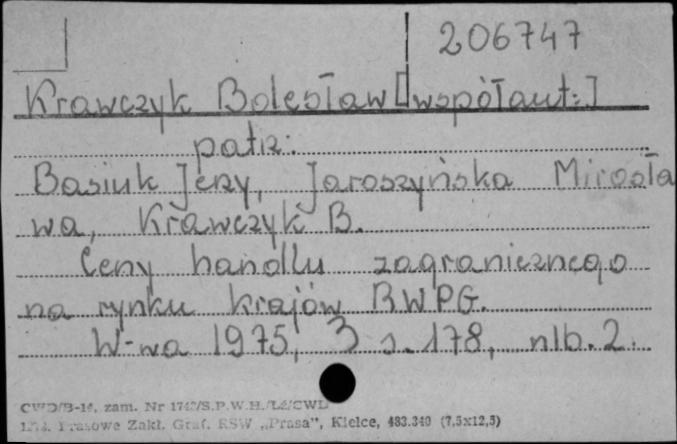 206747
Krawczyk Bolesław [współaut:]
patrz:
Basiuk Jerzy, Jaroszyńska Mirosła
wa, Krawczyk B.
Ceny handlu zagranicznego
na rynku krajów RWPG.
W-wa 1975, 3 s. 178, nlb. 2.
CWD/B-14, zam. Nr S.P.W.H.
Prasowe Zakł. Graf. RSW „Prasa", Kielce, 483.340 (7,5x12,5)